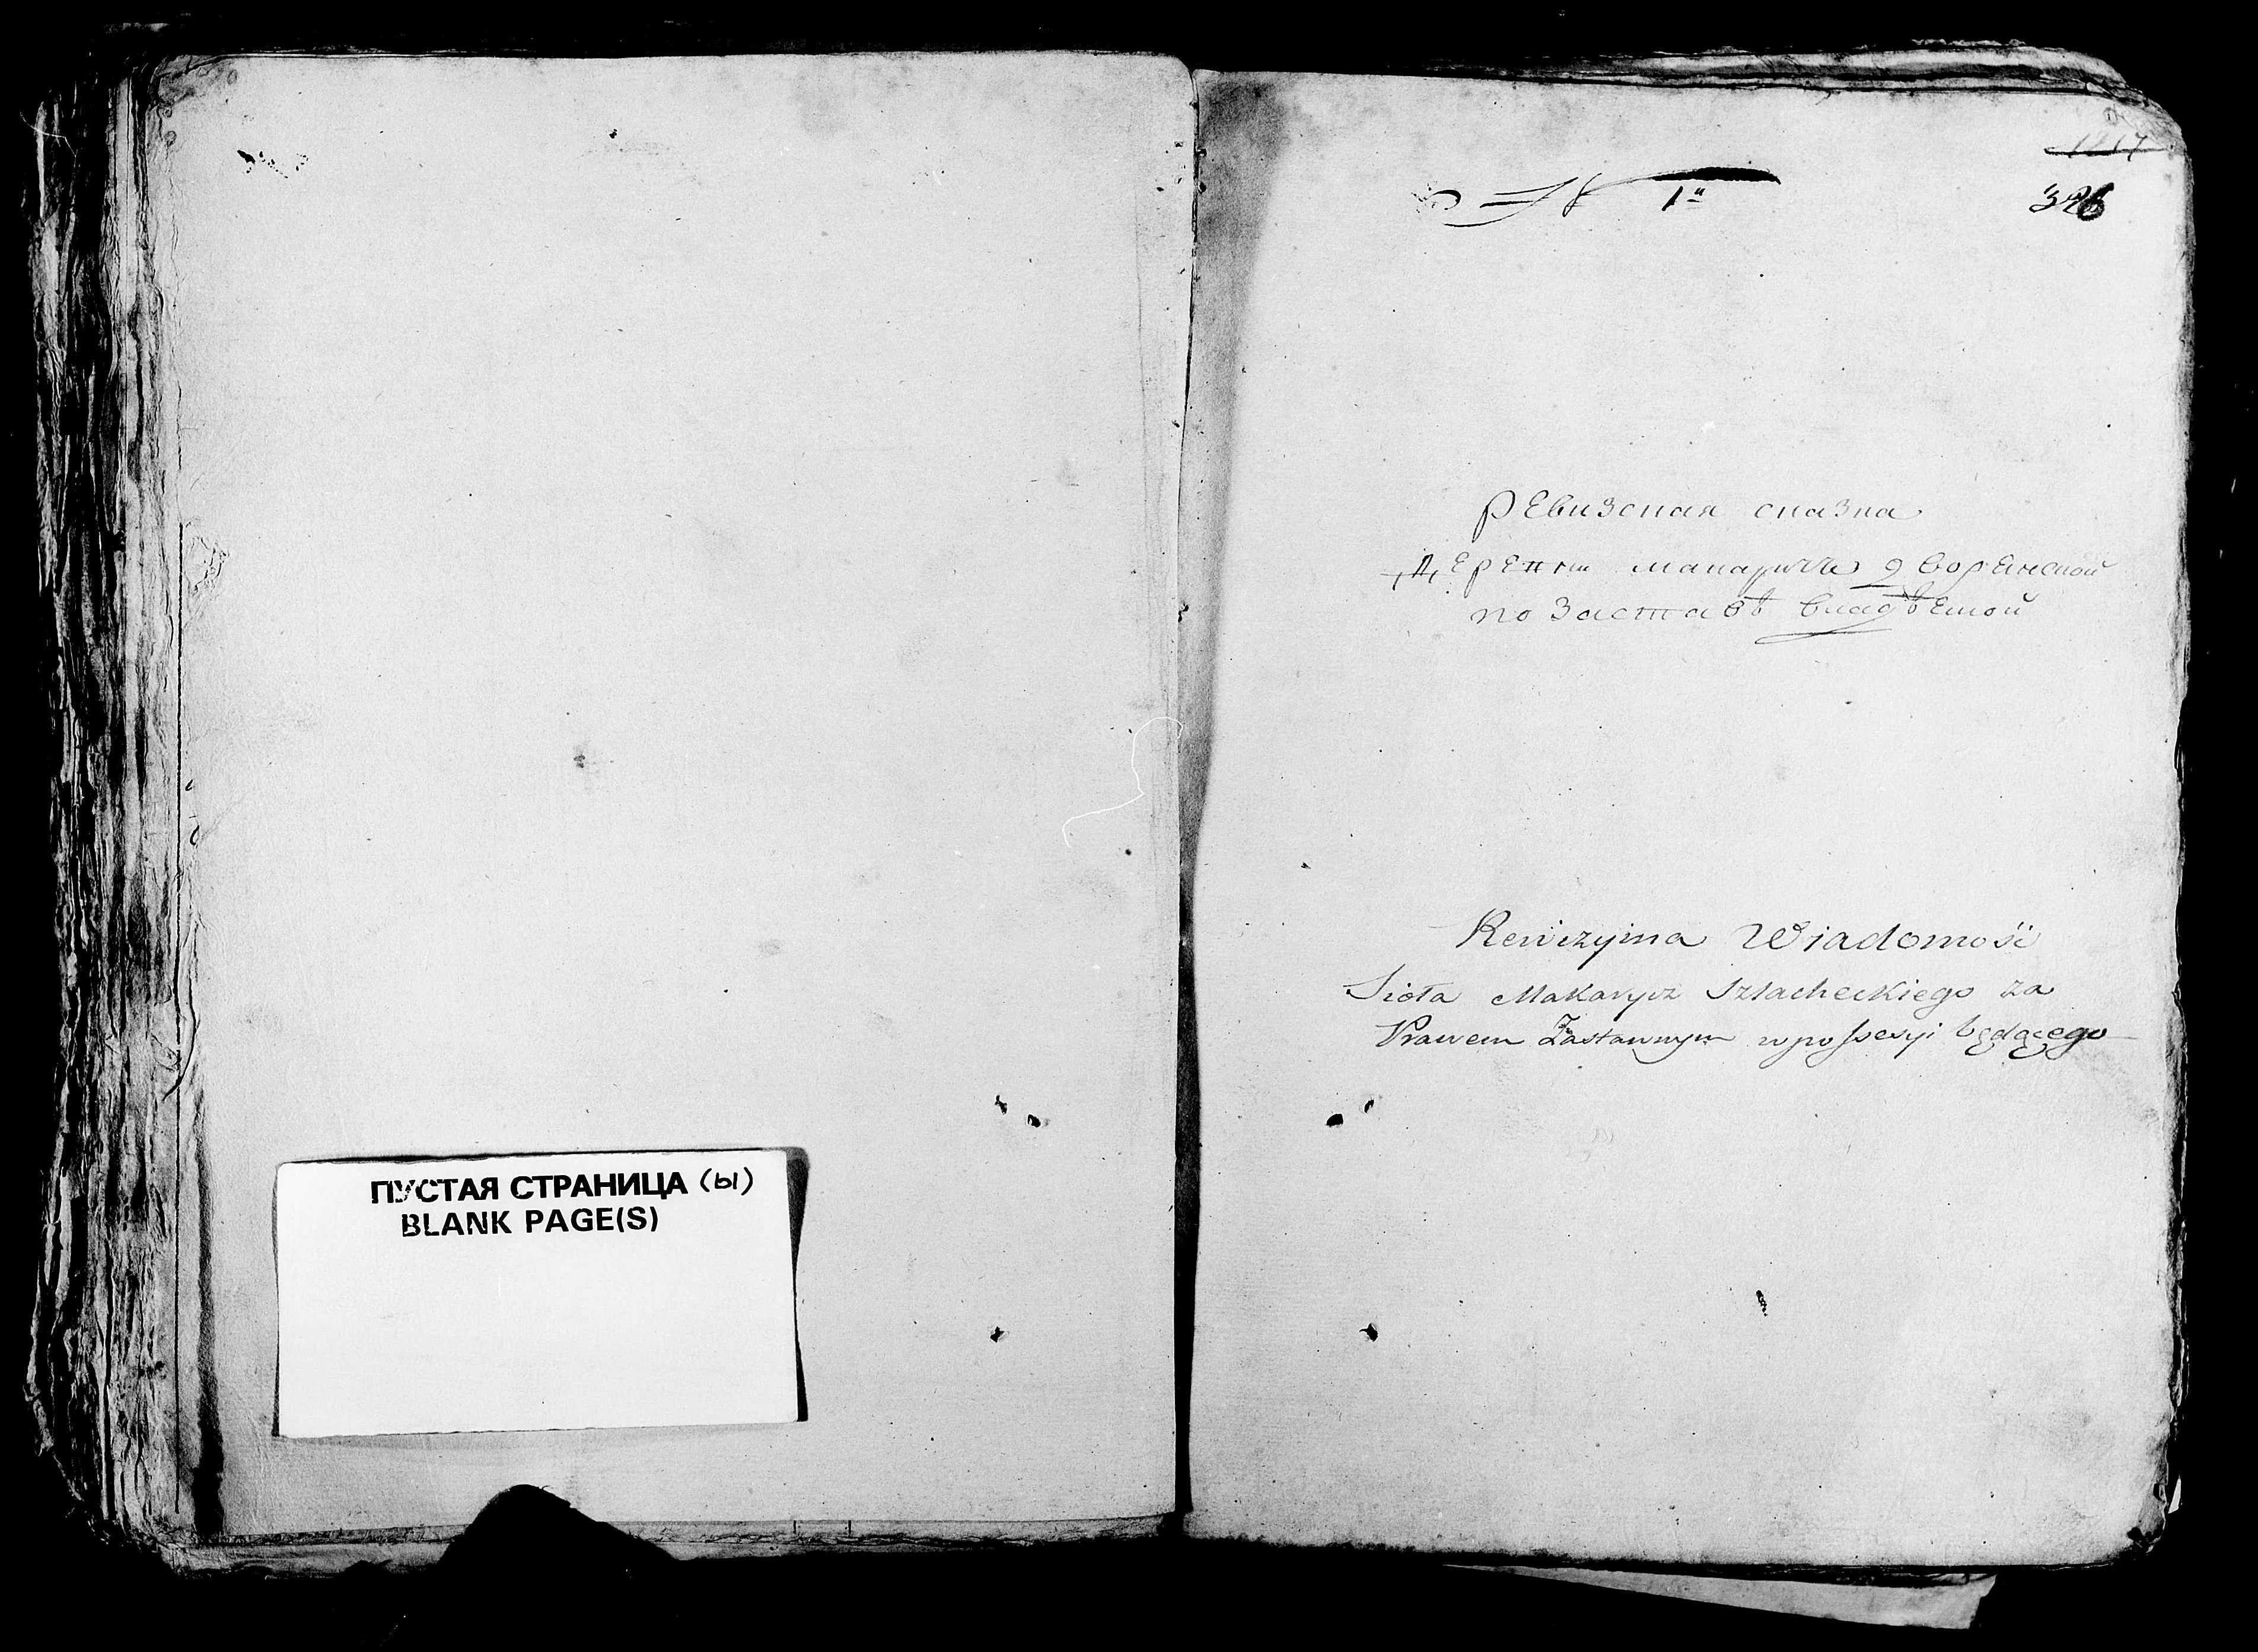 ПУСТАЯ СТРАНИЦА (Ы)
BLANK PAGE(S)
1217
№ 1й
326
Ревизская сказка
Деревни Макаричъ дворянской
по заставѣ владѣемой
Rewizyina Wiadomość
Sioła Makarycz Szlacheckiego za
Prawem Zastawnym w possesyi będącego